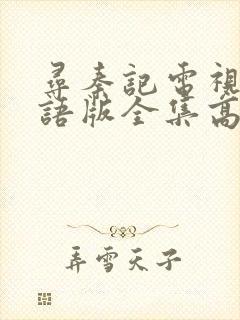 尋秦記電視
語版全集高
弄雪天子